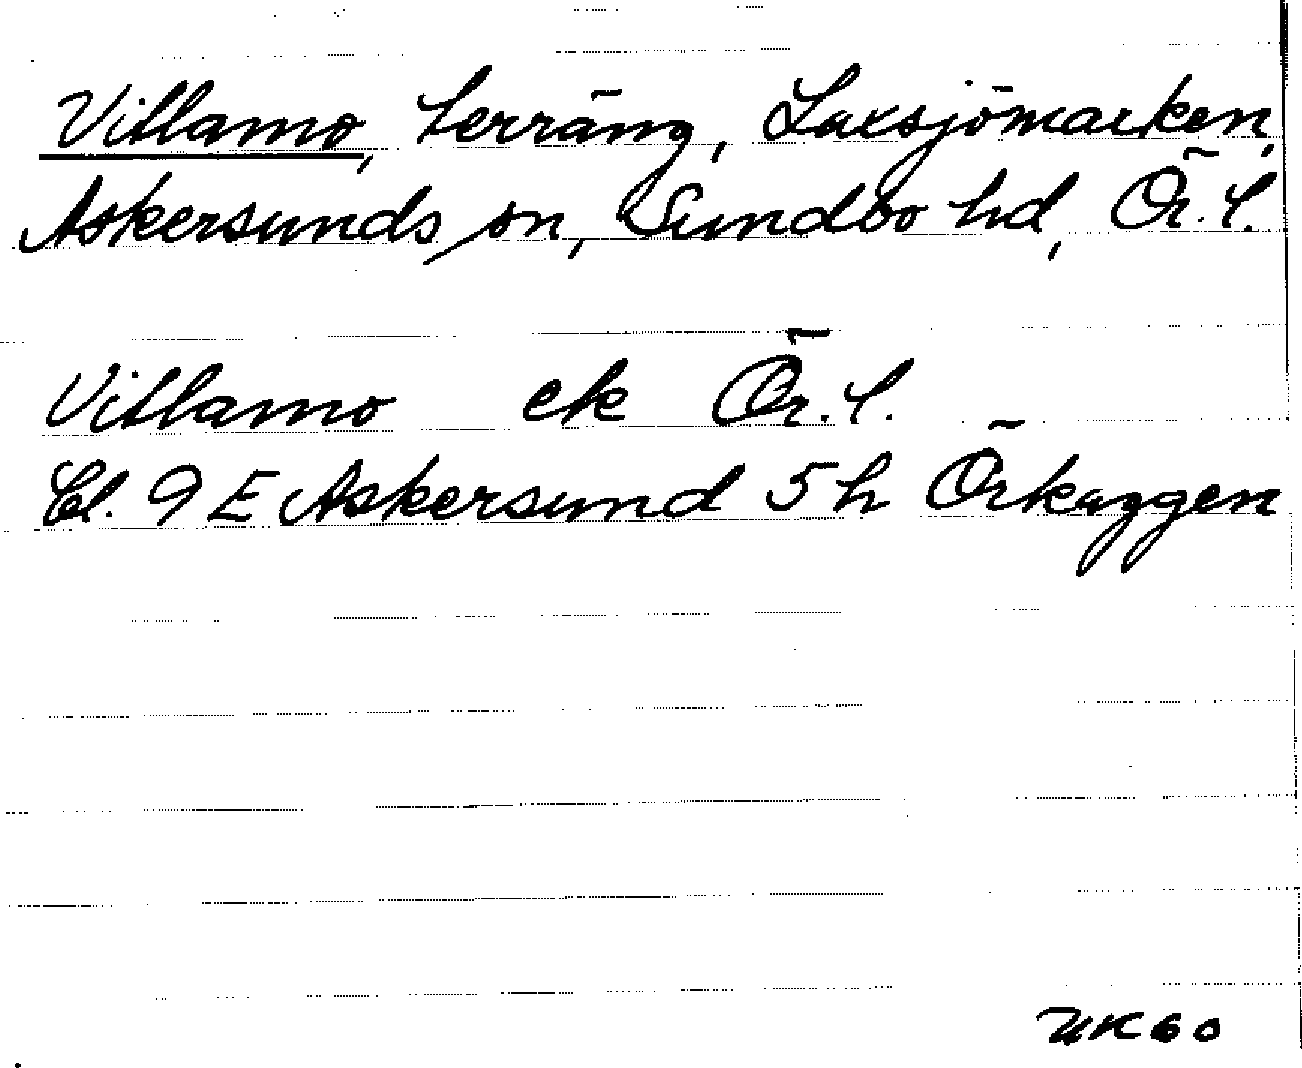 Villamo, terräng, Laxsjömarken,
Askersunds sn, Sundbo hd, Ör. l.
Villamo ek Ör. l.
Bl. 9 E Askersund 5 h Örkaggen
UK 60